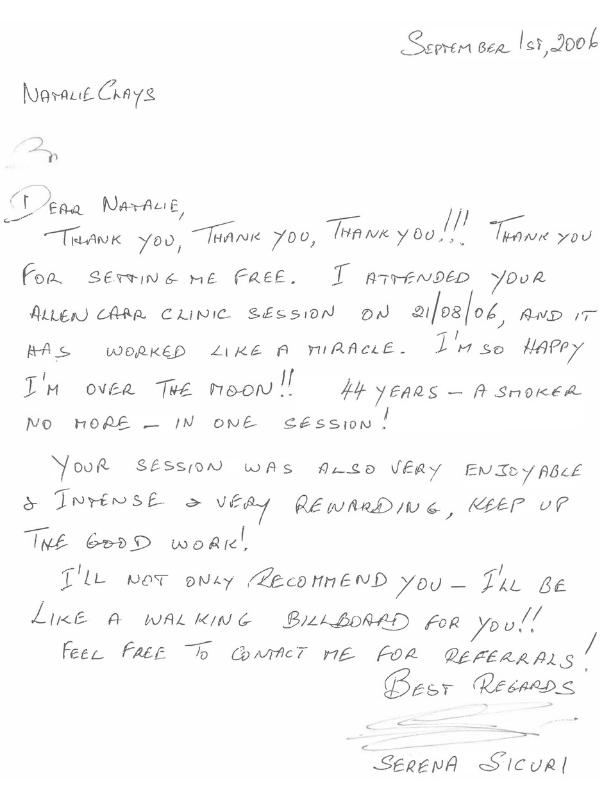 SEPTEMBER 1ST, 2006
NATALIE CLAYS
DEAR NATALIE,
THANK YOU, THANK YOU, THANK YOU!!! THANK YOU
FOR SETTING ME FREE. I ATTENDED YOUR
ALLEN CARR CLINIC SESSION ON 21/08/06, AND IT
HAS WORKED LIKE A MIRACLE. I'M SO HAPPY
I'M OVER THE MOON!! 44 YEARS – A SMOKER
NO MORE – IN ONE SESSION!
YOUR SESSION WAS ALSO VERY ENJOYABLE
& INTENSE & VERY REWARDING, KEEP UP
THE GOOD WORK!
I'LL NOT ONLY RECOMMEND YOU – I'LL BE
LIKE A WALKING BILLBOARD FOR YOU!!
FEEL FREE TO CONTACT ME FOR REFERRALS!
BEST REGARDS
SERENA SICURI